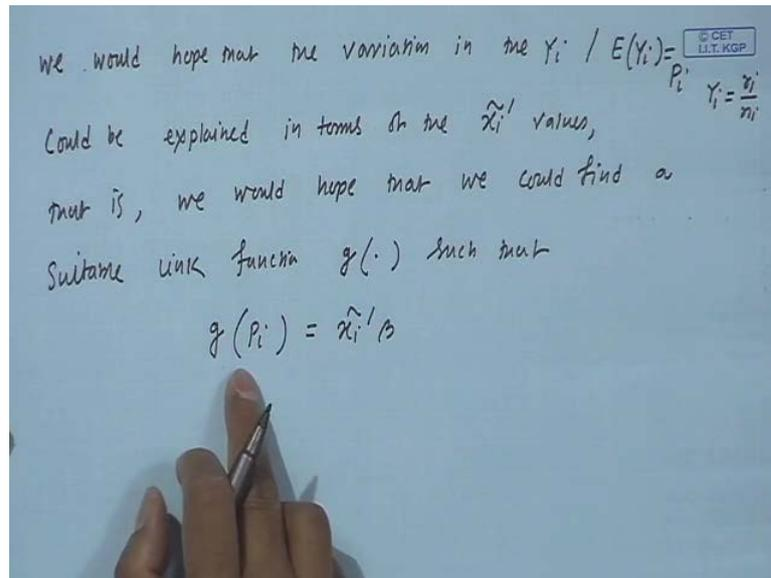 We would hope that the variation in the Yi / E(Yi) = Pi
Yi = ri/ni
© CET
I.I.T. KGP
Could be explained in terms of the x̃i′ values,
that is, we would hope that we could find a
Suitable link function g(·) such that
g(Pi) = x̃i′ β